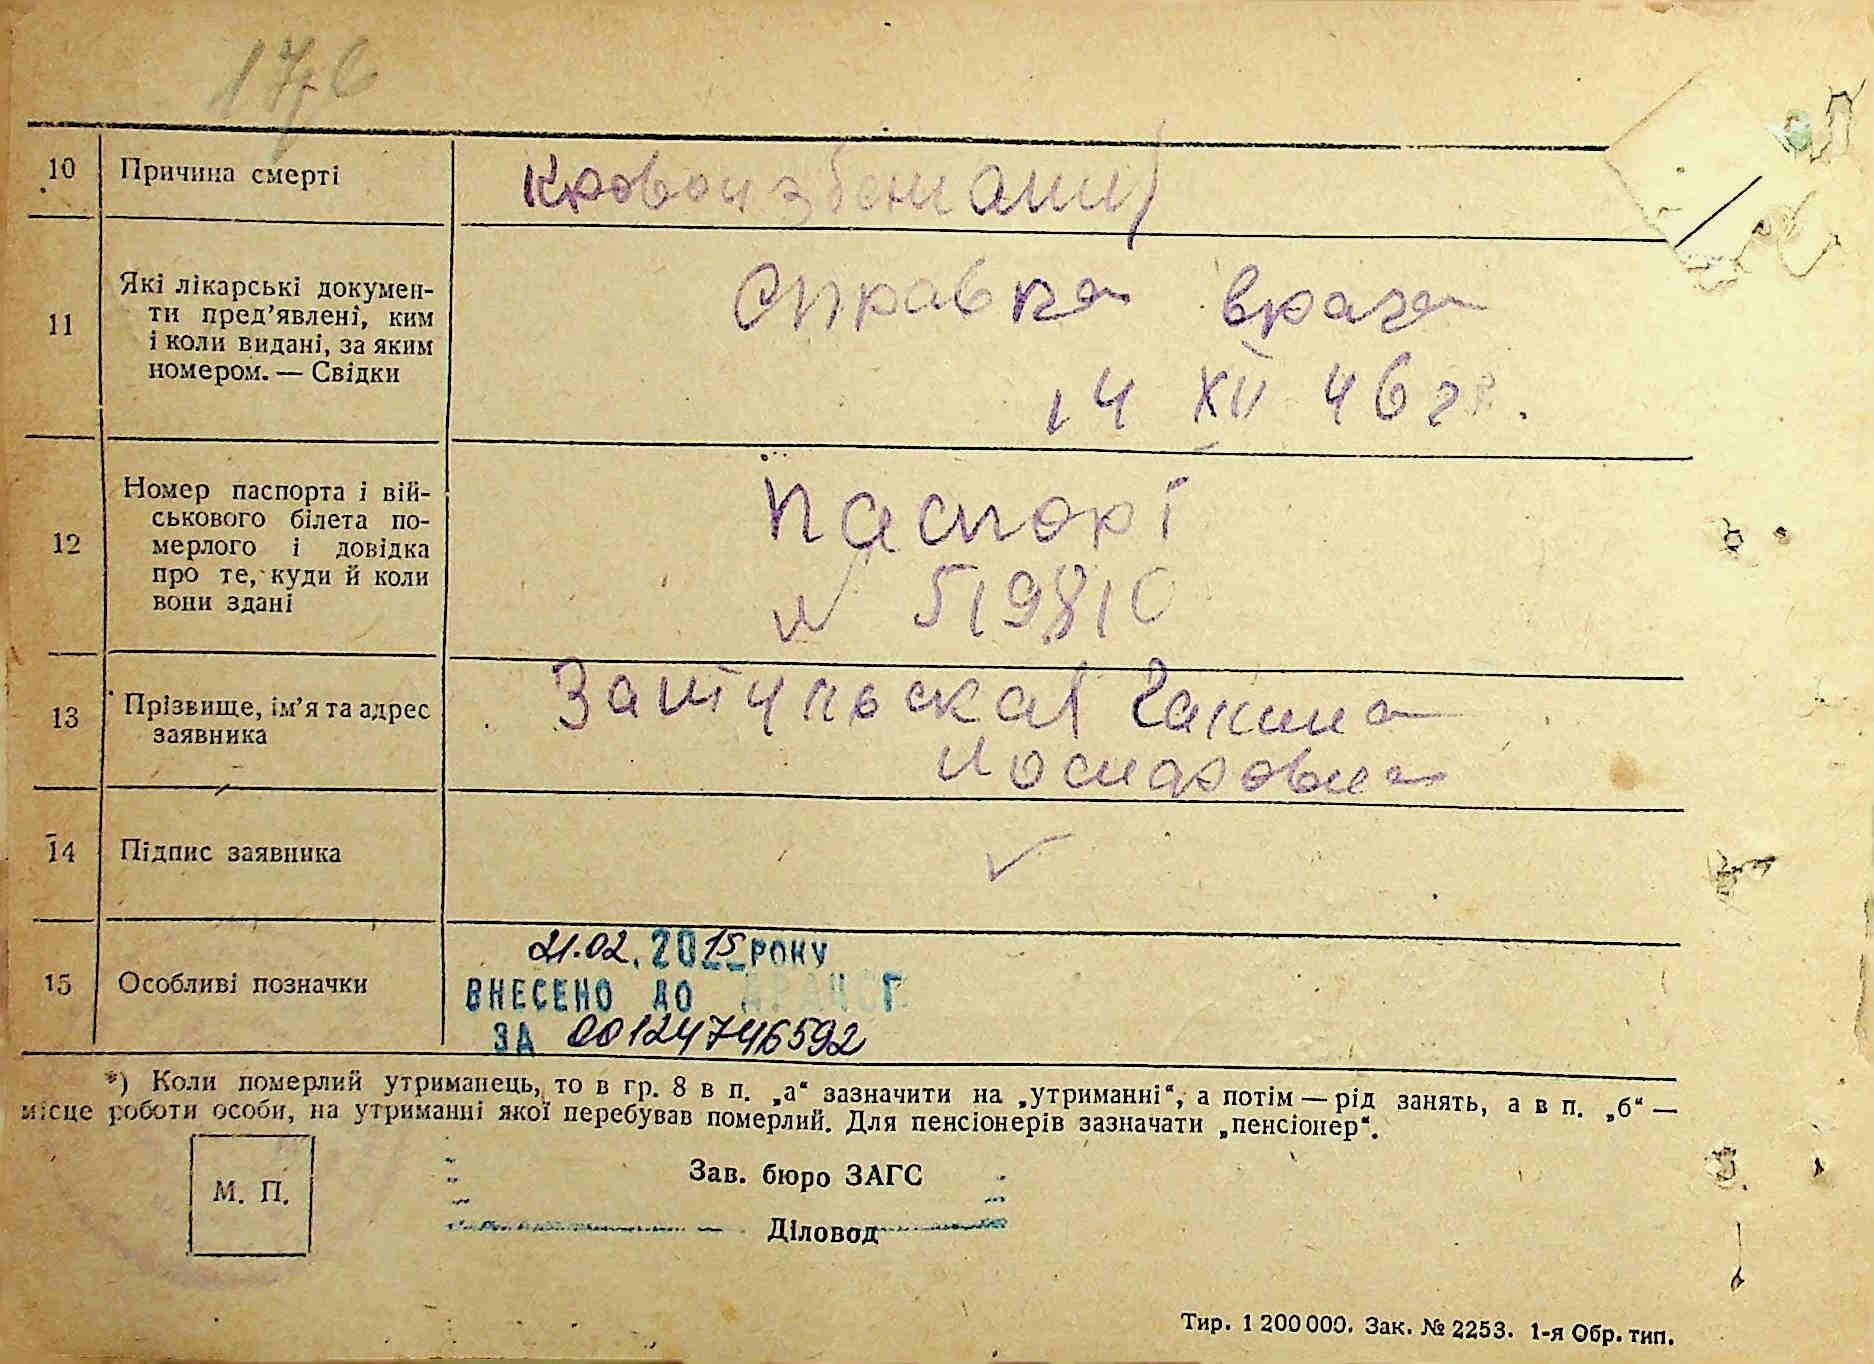 176
10 Причина смерті
11 Які лікарські докумен-
ти пред’явлені, ким
і коли видані, за яким
номером. — Свідки
Справка врача
14 XII 46 г.
12 Номер паспорта і вій-
ськового білета по-
мерлого і довідка
про те, куди й коли
вони здані
Паспорт
№ 519810
13 Прізвище, ім’я та адрес
заявника
Галина
14 Підпис заявника
15 Особливі позначки
21.02.2015 РОКУ
ВНЕСЕНО ДО ДРАЦСГ
ЗА 00124746592
*) Коли померлий утриманець, то в гр. 8 в п. „а“ зазначити на „утриманні“, а потім — рід занять, а в п. „б“ —
місце роботи особи, на утриманні якої перебував померлий. Для пенсіонерів зазначати „пенсіонер“.
М. П.
Зав. бюро ЗАГС
Діловод
Тир. 1 200 000. Зак. № 2253. 1-я Обр. тип.